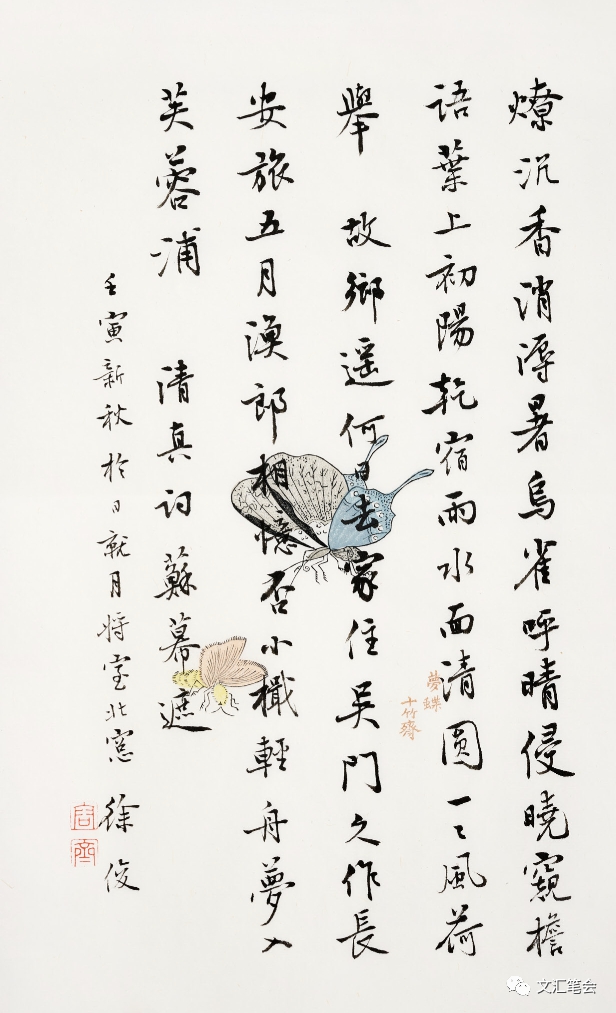 燎沉香消溽暑烏雀呼晴侵曉窺檐
語葉上初陽乾宿雨水面清圓一〻風荷
舉 故鄉遥何日去家住吳門久作長
安旅五月漁郎相憶否小檝輕舟夢入
芙蓉浦 清真詞蘇幕遮
壬寅新秋於日就月將室北窓 徐俊
夢蝶
十竹齋
文汇笔会